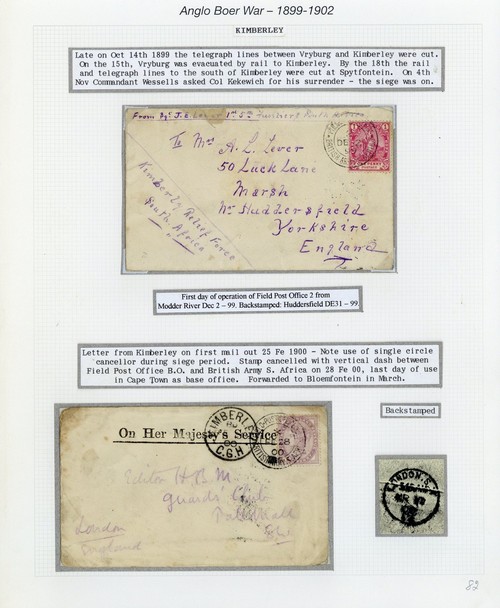 Anglo Boer War – 1899-1902
KIMBERLEY
Late on Oct 14th 1899 the telegraph lines between Vryburg and Kimberley were cut.
On the 15th, Vryburg was evacuated by rail to Kimberley. By the 18th the rail
and telegraph lines to the south of Kimberley were cut at Spytfontein. On 4th
Nov Commandant Wessells asked Col Kekewich for his surrender - the siege was on.
To Mrs A. L. Lever
50 Luck Lane
Marsh
Nr Huddersfield
Yorkshire
England
Kimberley Relief Force
South Africa
First day of operation of Field Post Office 2 from
Modder River Dec 2 – 99. Backstamped: Huddersfield DE31 – 99.
Letter from Kimberley on first mail out 25 Fe 1900 - Note use of single circle
cancellor during siege period. Stamp cancelled with vertical dash between
Field Post Office B.O. and British Army S. Africa on 28 Fe 00, last day of use
in Cape Town as base office. Forwarded to Bloemfontein in March.
Backstamped
KIMBERLEY
00
C.G.H
FE 28
00
On Her Majesty's Service
Editor H.B.M.
Guards' Club
Pall Mall
London
England
LONDON.S
82